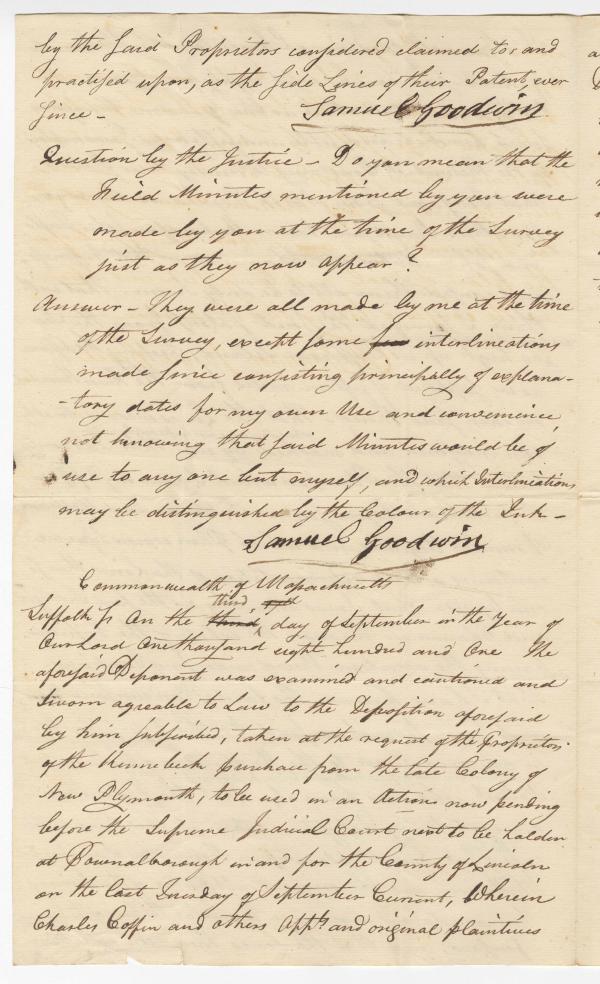 by the said Proprietors considered claimed to, and
practised upon, as the side Lines of their Patent, ever
since -
Samuel Goodwin
Question by the Justice - Do you mean that the
Field Minutes mentioned by you were
made by you at the time of the Survey
just as they now appear?
Answer - They were all made by me at the time
of the Survey, except some interlineations
made since consisting principally of explana-
-tory dates for my own Use and convenience
not knowing that said Minutes would be of
use to any one but myself, and which Interliniations
may be distinguished by the Colour of the Ink -
Samuel Goodwin
Commonwealth of Massachusetts
third
Suffolk Ss On the third day of September in the Year of
Our Lord One thousand eight hundred and One The
aforesaid Deponent was examined and cautioned and
Sworn agreeable to Law to the Deposition aforesaid
by him subscribed, taken at the request of the Proprietors
of the Kennebeck Purchase from the late Colony of
New Plymouth, to be used in an Action now pending
before the Supreme Judicial Court next to be holden
at Pownalborough in and for the County of Lincoln
on the last Tuesday of September Current, Wherein
Charles Coffin and others Appts and original plaintives